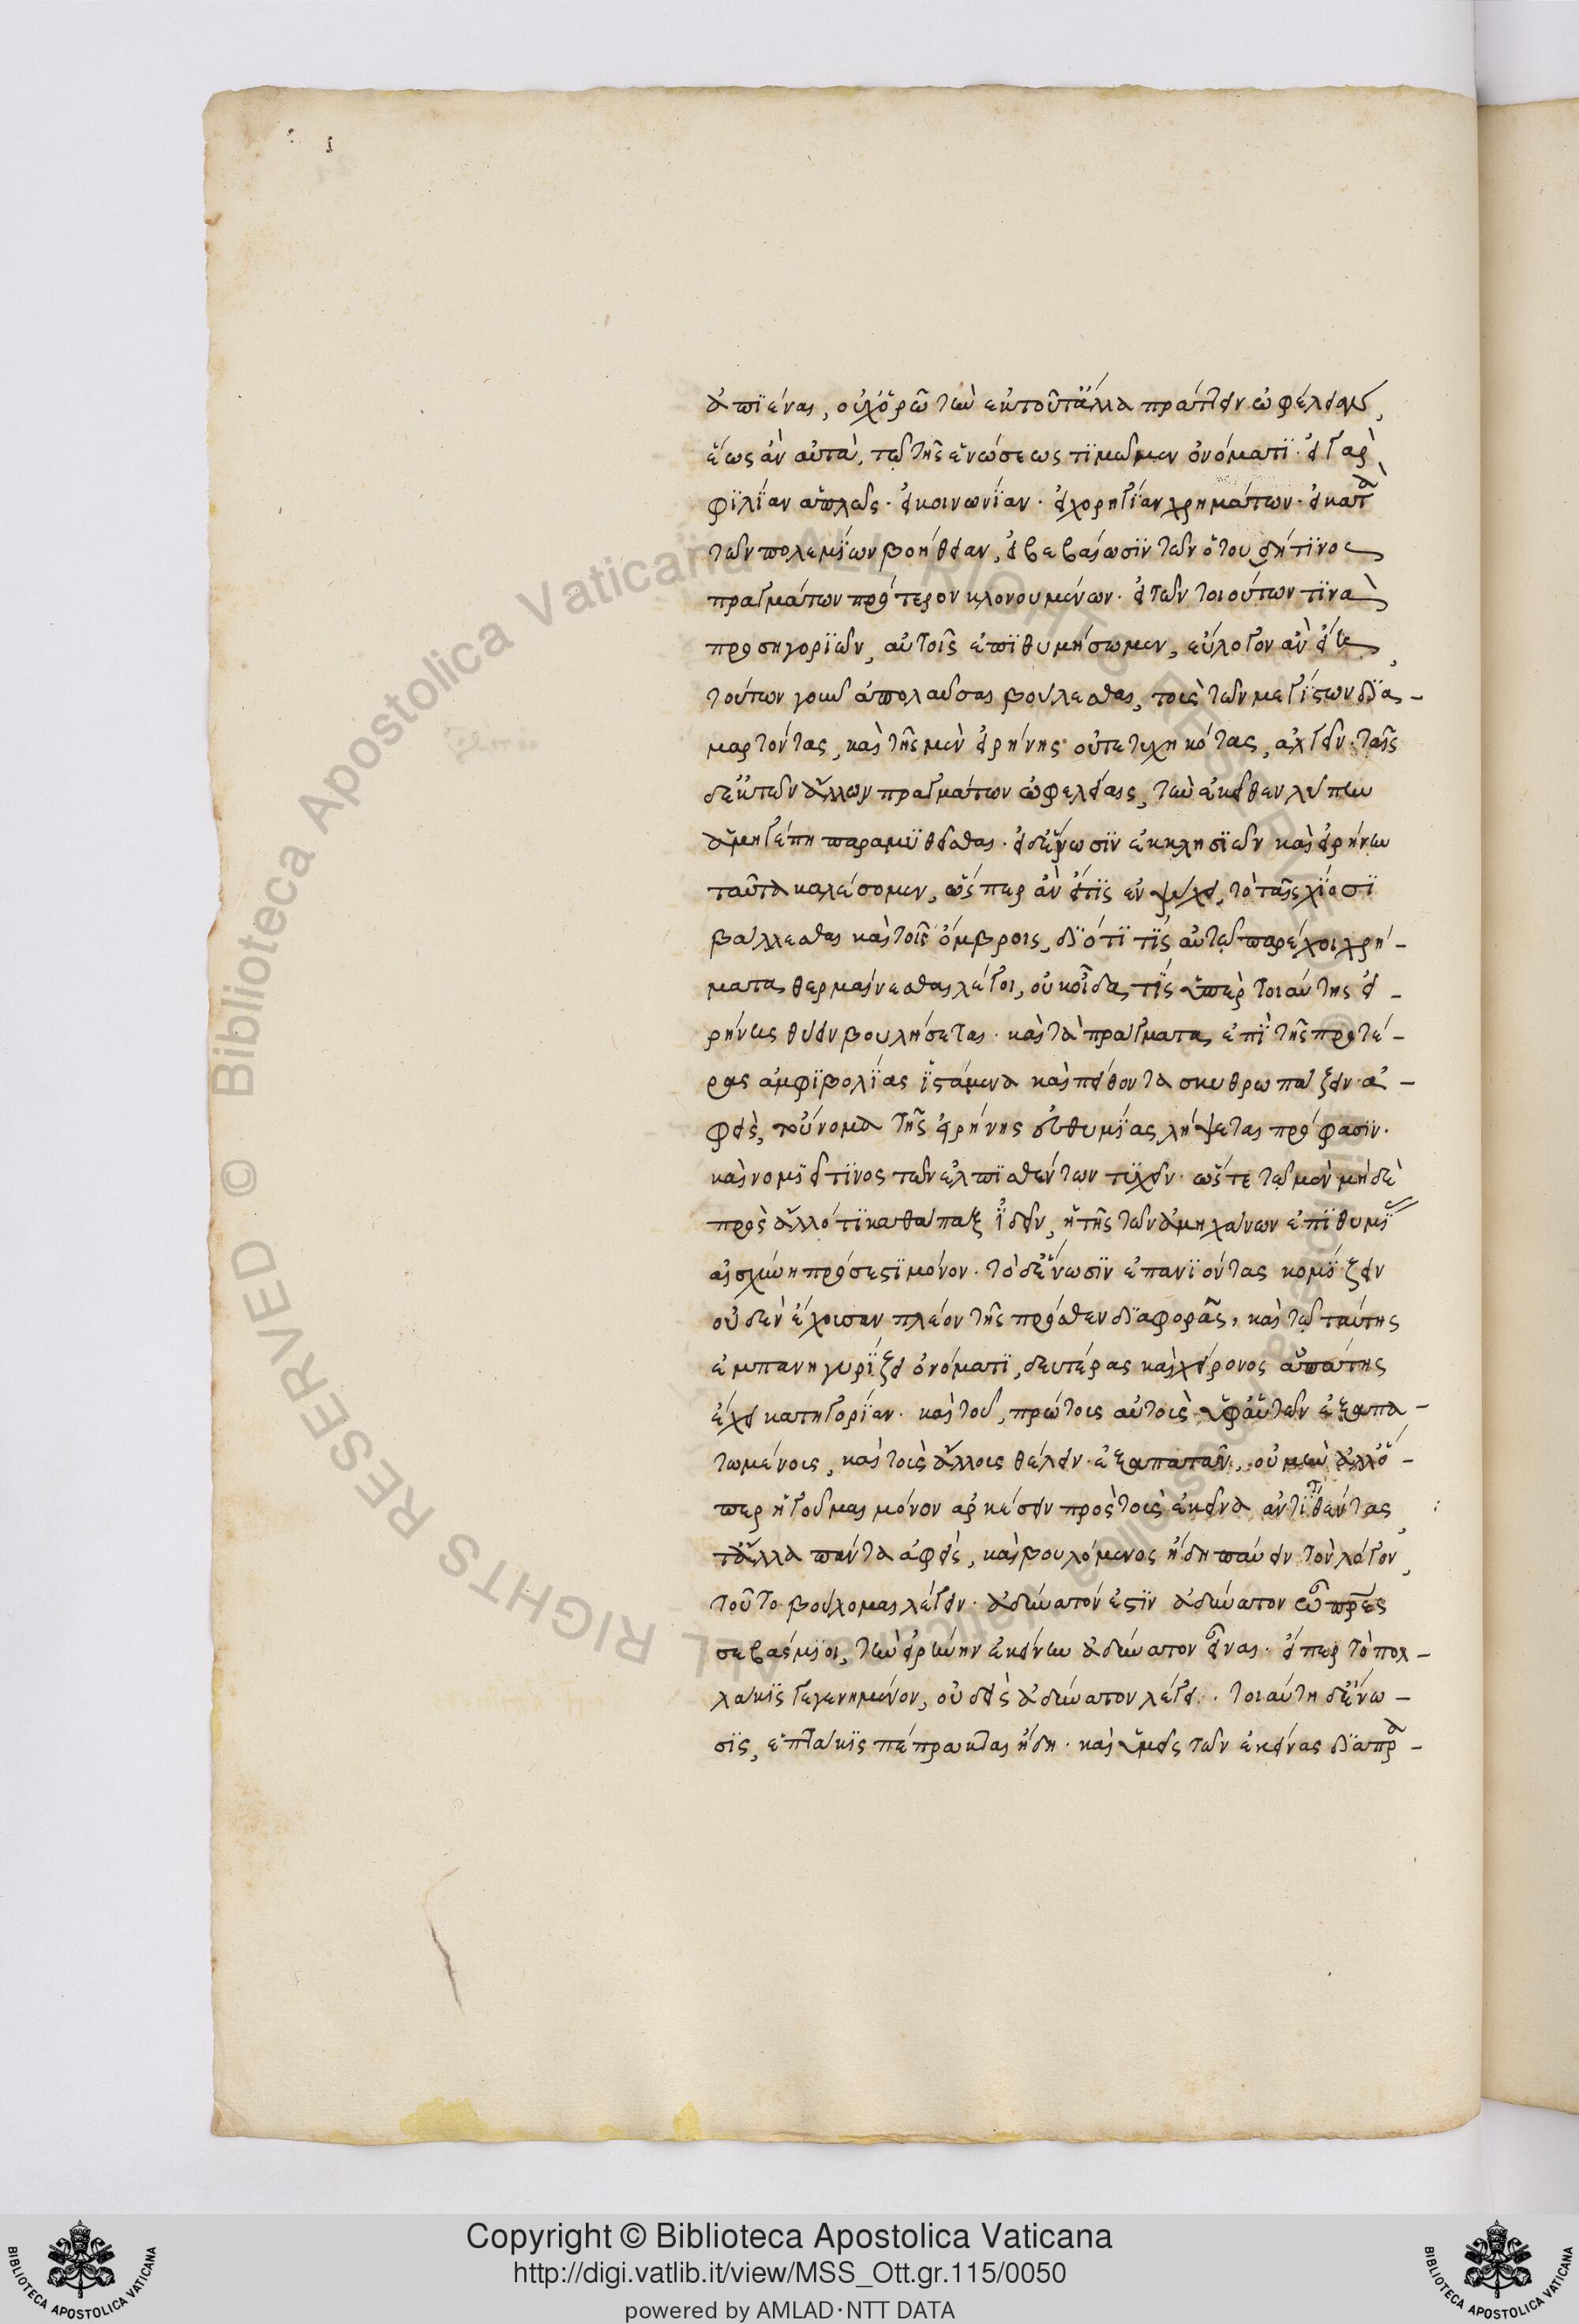 ἀπϊέναι, οὐχ ὁρῶ τὴν ἐκ τοῦ τἄλλα πράττειν ὠφέλειαν,
ἕως ἂν αὐτὰ, τῷ τῆς ἑνώσεως τϊμῶμεν ὀνόματϊ. εἰ γὰρ
φϊλΐαν ἁπλῶς. εἰ κοινωνΐαν. εἰ χορηγΐαν χρημάτων. εἰ κατὰ
τῶν πολεμΐων βοήθειαν, εἰ βεβαίωσϊν τῶν ὅτου δήτϊνος
πραγμάτων πρότερον κλονουμένων. εἰ τῶν τοιούτων τϊνὰ
προσηγορϊῶν, αὐτοῖς ἐπϊθυμήσωμεν, εὔλογον ἂν εἴη,
τούτων γοῦν ἀπολαῦσαι βούλεσθαι, τοὺς τῶν μεγΐστων δϊα-
μαρτόντας, καὶ τῆς μὲν εἰρήνης οὐ τετυχηκότας, ἀλγεῖν. ταῖς
δ' ἐκ τῶν ἄλλων πραγμάτων ὠφελείαις, τὴν ἐκεῖθεν λύπην
ἁμηγέπη παραμϋθεῖσθαι. εἰ δ' ἕνωσϊν ἐκκλησϊῶν καὶ εἰρήνην
ταῦτα καλέσομεν, ὥσπερ ἂν εἴ τϊς ἐν ψύχει, τὸ ταῖς χϊόσϊ
βάλλεσθαι καὶ τοῖς ὄμβροις, δϊότϊ τΐς αὐτῷ παρέχοι χρή-
ματα, θερμαίνεσθαι λέγοι, οὐκ οἶδα, τΐς ὑπὲρ τοιαύτης εἰ-
ρήνης θύειν βουλήσεται. καὶ τὰ πράγματα, ἐπϊ τῆς προτέ-
ρας ἀμφϊβολΐας ἱστάμενα καὶ πείθοντα σκυθρωπάζειν ἀ-
φεὶς, τοὔνομα τῆς εἰρήνης εὐθυμΐας λήψεται πρόφασϊν.
καὶ νομϊεῖ τϊνος τῶν ἐλπϊσθέντων τϋχεῖν. ὥστε τῷ μὲν μηδὲ
πρὸς ἄλλό τϊ καθάπαξ ΐδεῖν, ἢ τῆς τῶν ἀμηχάνων ἐπϊθυμΐ
αἰσχύνη πρόσεστϊ μόνον. τὸ δ' ἕνωσϊν ἐπανϊόντας κομΐζειν
οὐδὲν ἔχουσαν πλέον τῆς πρόσθεν δϊαφορᾶς, καὶ τῷ ταύτης
ἐμπανηγυρΐζει ὀνόματϊ, δευτέρας καὶ χείρονος ἀπάτης
ἔχει κατηγορΐαν. καὶ τοῦ, πρώτοις αὐτοὺς ὑφ' αὑτῶν ἐξαπα-
τωμένοις, καὶ τοὺς ἄλλοις θέλειν ἐξαπατᾶν. οὐ μὴν ἀλλ' ὅ-
περ ἡγοῦμαι μόνον ἀρκέσειν πρὸς τοὺς ἐκεῖνα ἀντϊτιθέντας,
τἄλλα πάντα ἀφεὶς, καὶ βουλόμενος ἤδη παύειν τὸν λόγον,
τοῦτο βούλομαι λέγειν. ἀδύνατόν ἐστϊν ἀδύνατον ὦ πρες
σεβάσμϊοι, τὴν εἰρήνην ἐκείνην ἀδύνατον εἶναι. εἴπερ τὸ πολ-
λάκϊς γεγενημένον, οὐδεὶς ἀδύνατον λέγει. τοιαύτη δ' ἕνω-
σϊς, ἑπτάκϊς πέπρακται ἤδη. καὶ ὑμεῖς τῶν ἐκείνας δϊαπρα-
Copyright © Biblioteca Apostolica Vaticana
http://digi.vatlib.it/view/MSS_Ott.gr.115/0050
powered by AMLAD·NTT DATA